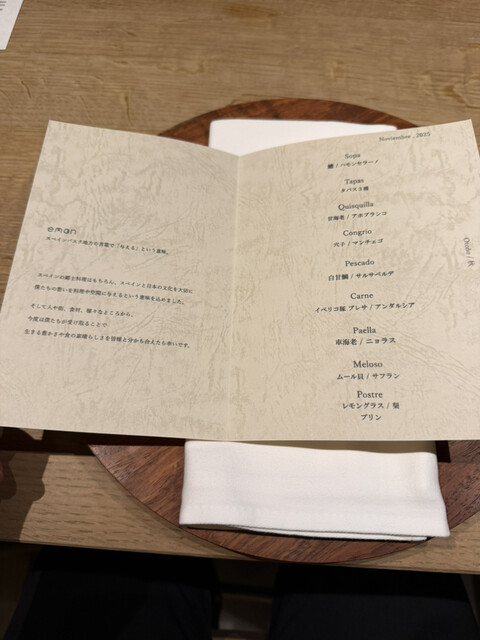 eman
スペインバスク地方の言葉で「与える」という意味。
スペインの郷土料理はもちろん、スペインと日本の文化を大切に
僕たちの想いを料理や空間に与えるという意味を込めました。
そして人や街、食材、様々なところから、
今度は僕たちが受け取ることで
生きる豊かさや食の素晴らしさを皆様と分かち合えたら幸いです。
Noviembre , 2025
Sopa
/ ハモンセラーノ
Tapas
タパス3種
Quisquilla
甘海老 / アホブランコ
Congrio
穴子 / マンチェゴ
Pescado
白甘鯛 / サルサベルデ
Carne
イベリコ豚 プレサ / アンダルシア
Paella
車海老 / ニョラス
Meloso
ムール貝 / サフラン
Postre
レモングラス / 梨
プリン
Otoño / 秋